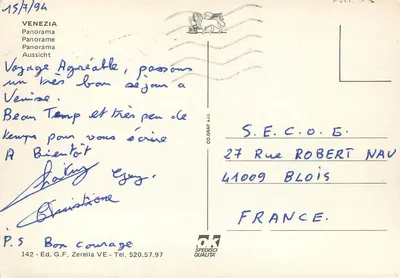 15/7/94
VENEZIA
Panorama
Panorame
Panorama
Aussicht
Voyage Agréable, passons
un très bon séjour à
Venise.
Beau Temp et très peu de
temps pour vous écrire
A Bientôt
Christiane
P.S Bon courage
142 - Ed. G.F. Zerella VE - Tel. 520.57.97
CO.GRAF s.r.l.
S.E.C.O.E.
27 Rue ROBERT NAU
41009 BLOIS
FRANCE.
ok
SPEDISCI
QUALITA'